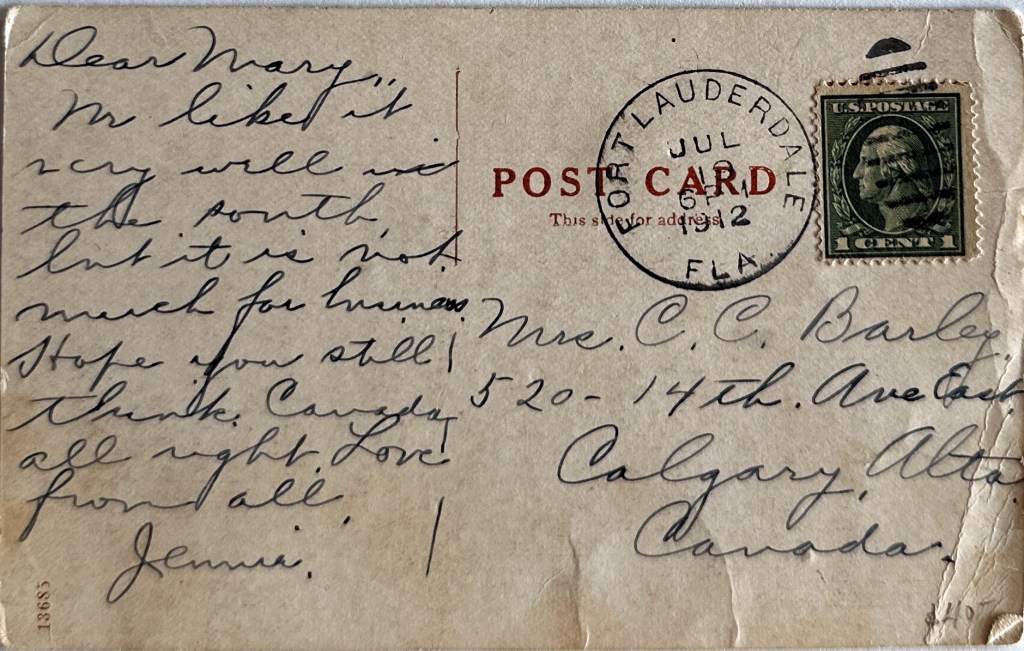 Dear Mary,,
We like it
very well in
the south,
but it is not
much for business
Hope you still
think Canada
all right. Love
from all.
Jennie.
13685
POST CARD
This side for address.
FORT LAUDERDALE
JUL
6 PM
1912
FLA.
U.S. POSTAGE
1 CENT 1
Mrs. C. C. Barley,
520 - 14th. Ave East
Calgary, Alta
Canada.